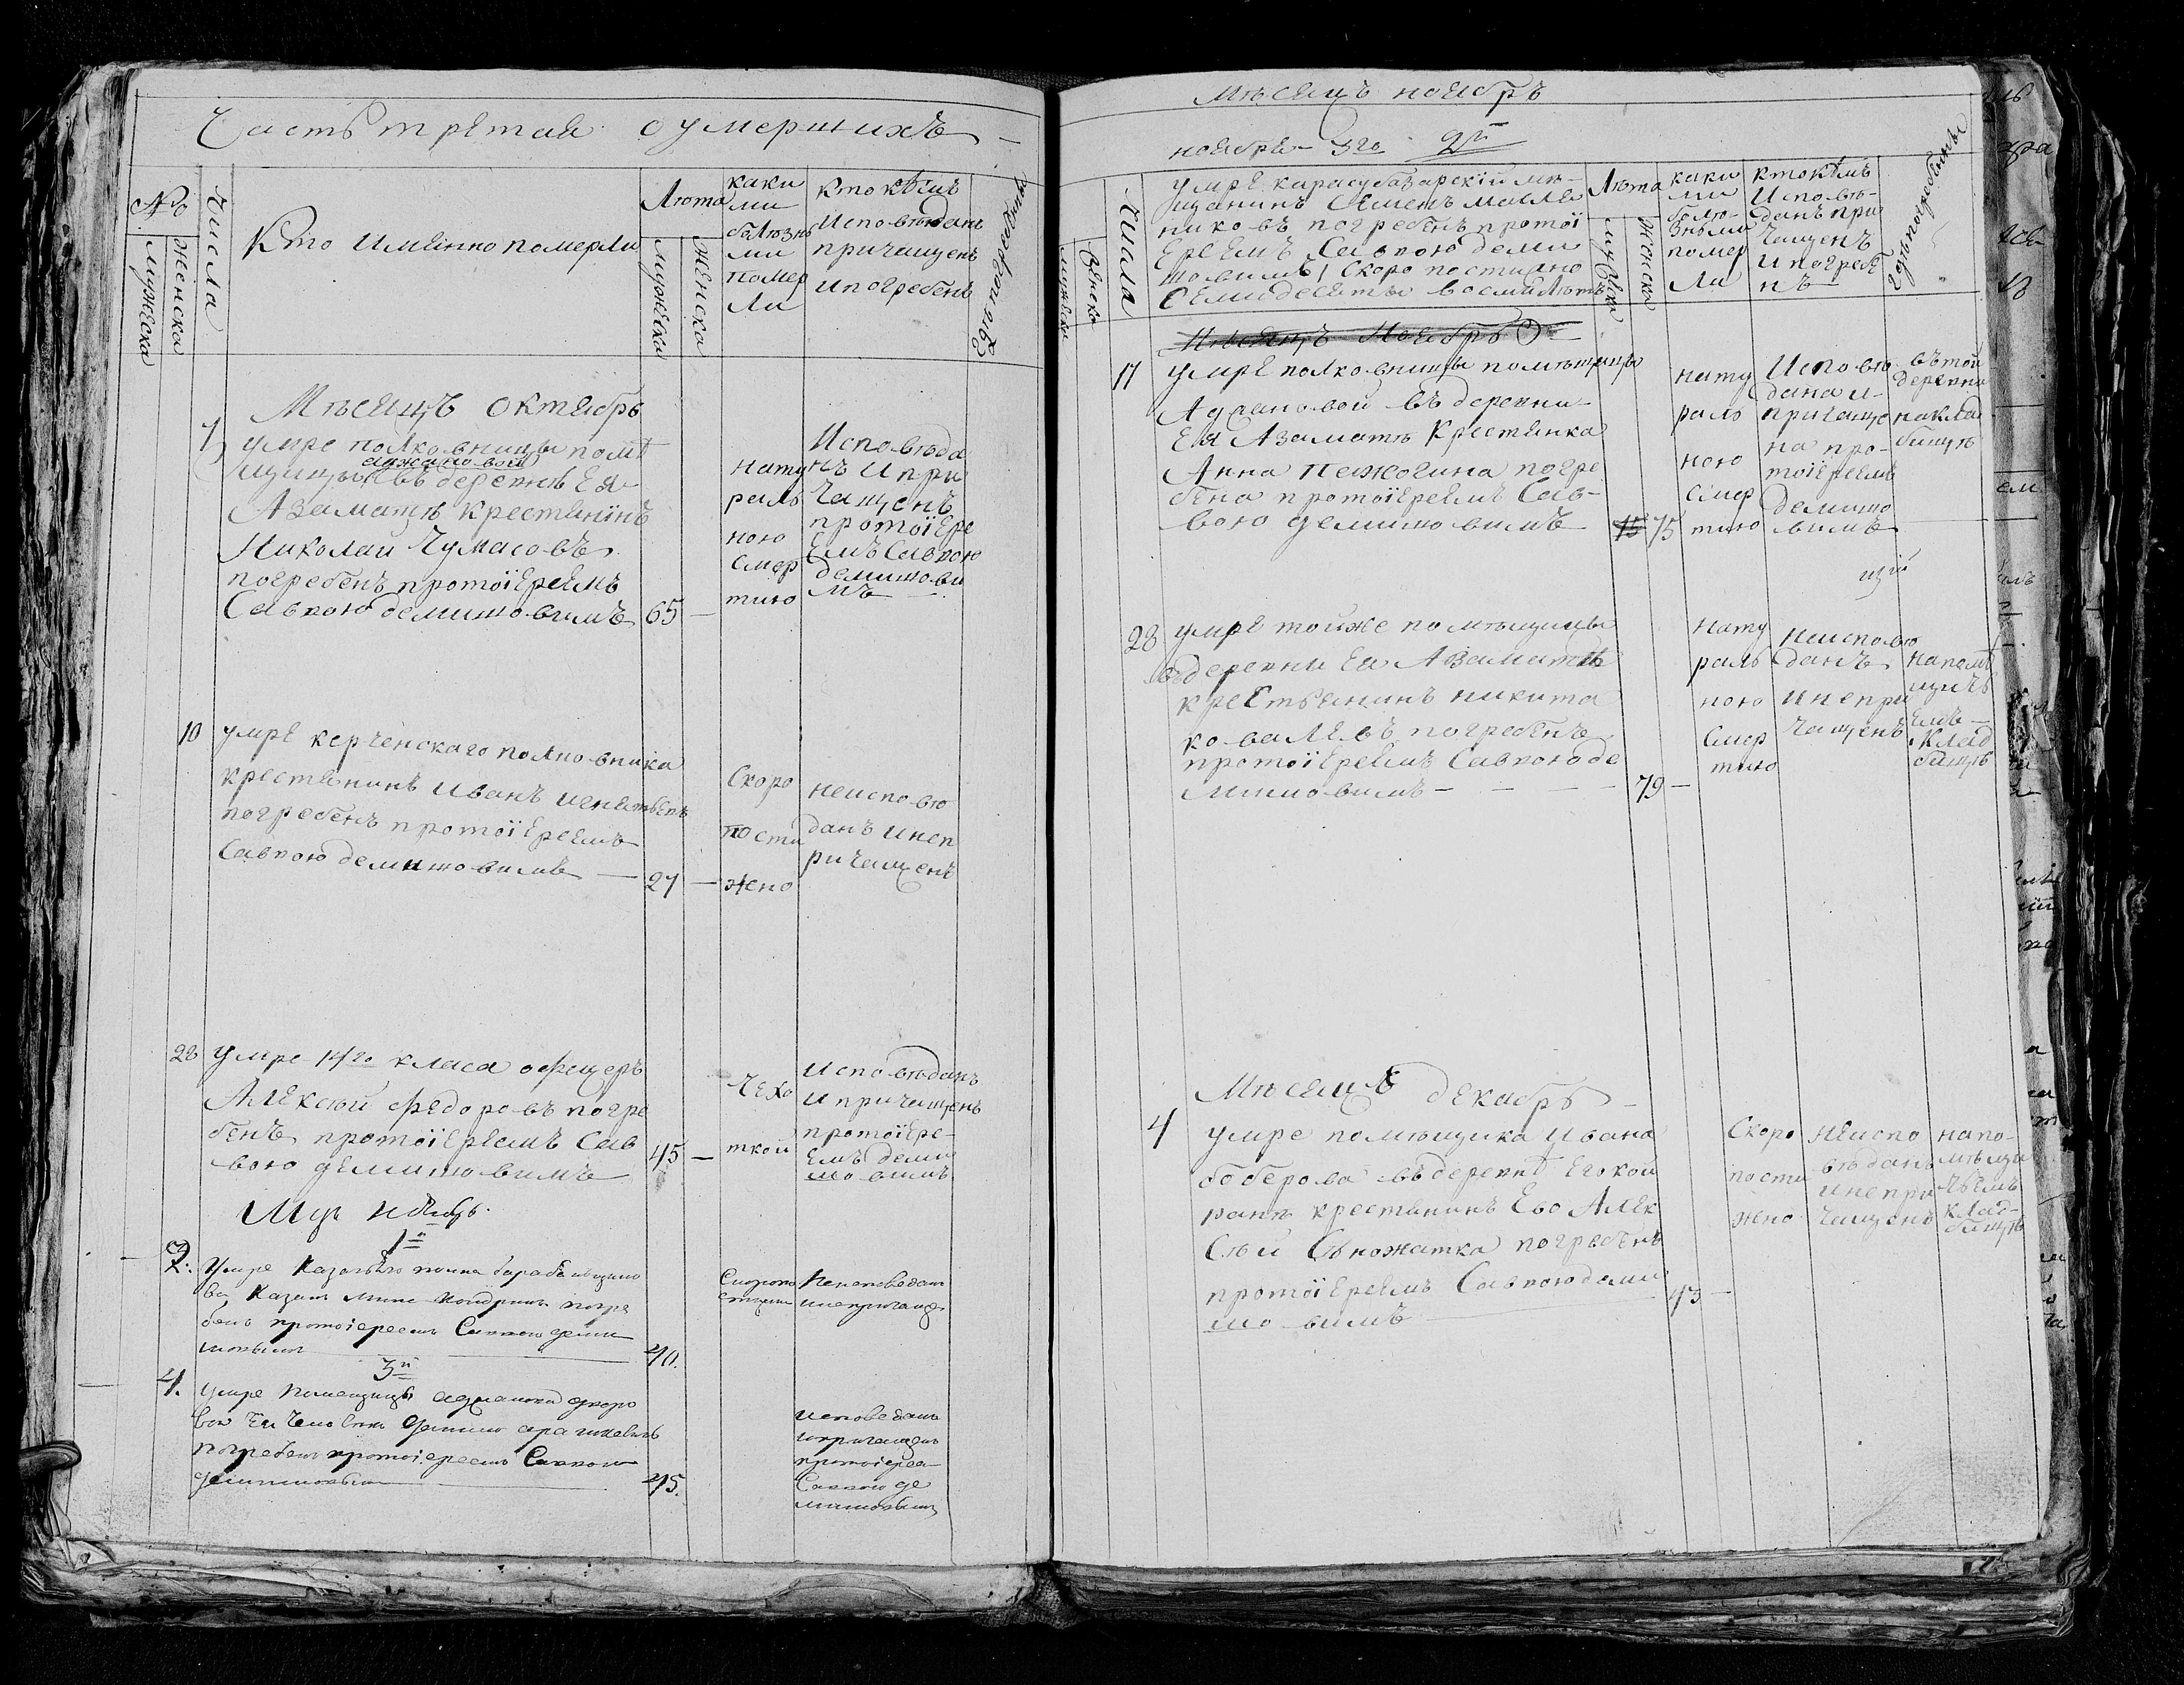 Часть третая о умершихъ
№
мужеска
женска
Числа
Кто имянно померли
Лѣта
мужеска
женска
каки
ми
болѣзнь
ми
помер
ли
Кто кѣмъ
исповѣданъ
причащенъ
и погребенъ
Гдѣ погребенны
Мѣсяцъ октябрь
7
умре полковницы помѣ
щицы въ деревнѣ Ея
Азаматъ крестянинъ
Николай Чумасовъ
погребенъ протоіереемъ
Саввою демишовимъ
65
нату
раль
ною
смер
тию
Исповѣда
нъ и при
чащенъ
протоіере
емъ Саввою
демишови
мъ
10
умре керченскаго полковника
крестянинъ Иванъ
погребенъ протоіереемъ
Саввою демишовимъ
27
Скоро
пости
жено
неисповѣ
данъ и неп
ричащенъ
28
умре 14го класа офицеръ
Алексѣй Федоровъ погре
бенъ протоіереемъ Сав
вою демишовимъ
45
чехо
ткой
исповѣданъ
и причащенъ
протоіере-
емъ деми
шовимъ
Мцъ
1й
2.
умре
Казакъ погре
бенъ протоіереемъ Саввою деми
шовымъ
40.
Скоропо
Неисповеданъ
инепричаще
3й
4.
умре помещицы
погребенъ протоіереемъ Саввою
демишовым
45.
исповеданъ
и причащенъ
протоіерее
Саввою де
мишовым
Мѣсяцъ ноябръ
ноября 3го 2й
Числа
женска
мужеска
умре карасубазарскій мѣ-
щанинъ Семенъ
никовъ погребенъ протоі
ереемъ Саввою деми
шовимъ скоропостижно
семидесяты восми лѣтъ
Лѣта
мужеска
женска
каки
ми
болѣ-
знями
помер
ли
Кто кѣмъ
Исповѣ-
данъ при
чащенъ
и погребе
нъ
гдѣ погребенны
Мѣсяцъ Ноябрь
17
умре полковницы помѣщицы
въ деревни
Ея Азаматъ Крестянка
Анна погре
бена протоіереемъ Сав-
вою демишовимъ
75
нату
раль
ною
смер
тию
Исповѣ
дана и
причаще
на про-
тоіереемъ
демишо
вимъ
въ той
деревни
на клад
бищѣ
28
умре тойже помѣщицы
въ деревни Ея Азаматъ
крестьянинъ никита
ковалевъ погребенъ
протоіереемъ Саввою де
мишовимъ
79
нату
раль
ною
смер
тию
неисповѣ
данъ
и непри
чащенъ
на помѣ
щичь
емъ
клад
бищѣ
Мѣсяцъ декабрь
4
умре помѣщика Ивана
боберова въ деревнѣ его кой
ранъ крестянинъ Ево Алек
сѣй Сѣножатка погребенъ
протоіереемъ Саввою деми
шовимъ
43
Скоро
пости
жено
неиспо
вѣданъ
и непри
чащенъ
на по-
мѣщи
чьемъ
клад-
бищѣ